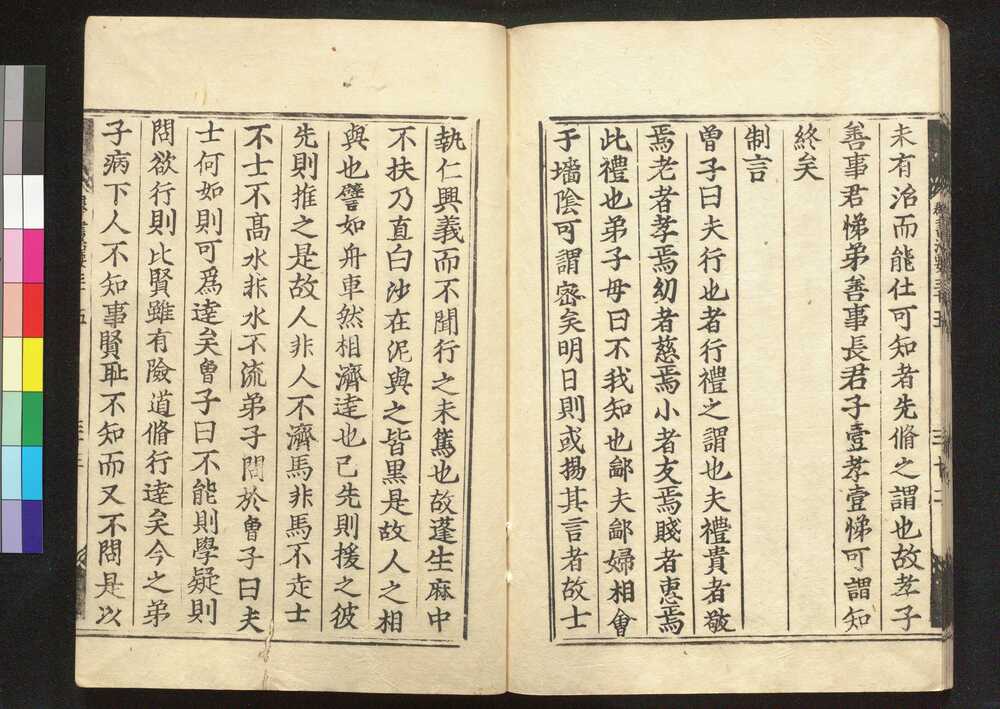 未有治而能仕可知者先脩之謂也故孝子
善事君悌弟善事長君子壹孝壹悌可謂知
終矣
制言
曽子曰夫行也者行禮之謂也夫禮貴者敬
焉老者孝焉幼者慈焉小者友焉賤者惠焉
此禮也弟子毋曰不我知也鄙夫鄙婦相會
于墻陰可謂密矣明日則或揚其言者故士
執仁興義而不聞行之未篤也故蓬生麻中
不扶乃直白沙在泥與之皆黒是故人之相
與也譬如舟車然相濟逹也己先則援之彼
先則推之是故人非人不濟馬非馬不走士
不士不髙水非水不流弟子問於曽子曰夫
士何如則可爲逹矣曽子曰不能則學疑則
問欲行則比賢雖有險道脩行逹矣今之弟
子病下人不知事賢耻不知而又不問是以